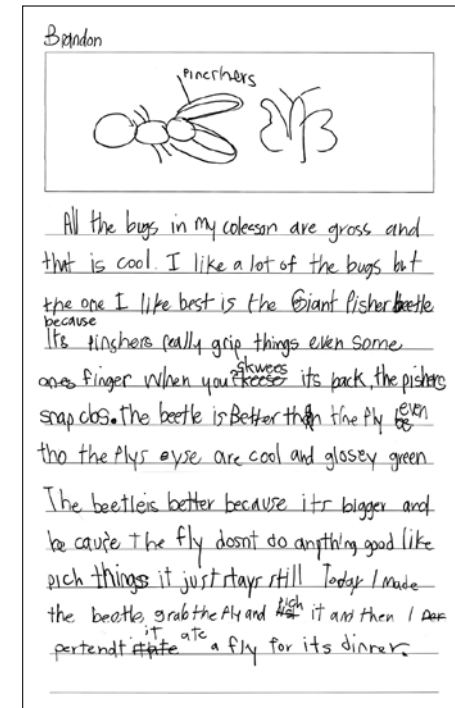 Brandon
pincrhers
All the bugs in my colecson are gross and
that is cool. I like a lot of the bugs but
the one I like best is the Giant Pisher beetle
because
Its pinshers really grip things even some
ones finger When you skwees its back, the pishers
snap clos. the beetle is Better than the fly even
tho the flys eyse are cool and glosey green
The beetle is better because its bigger and
be cause the fly dosnt do anything good like
pich things it just stays still Today I made
the beatle grab the fly and pich it and then I
pertendt it ate a fly for its dinner.